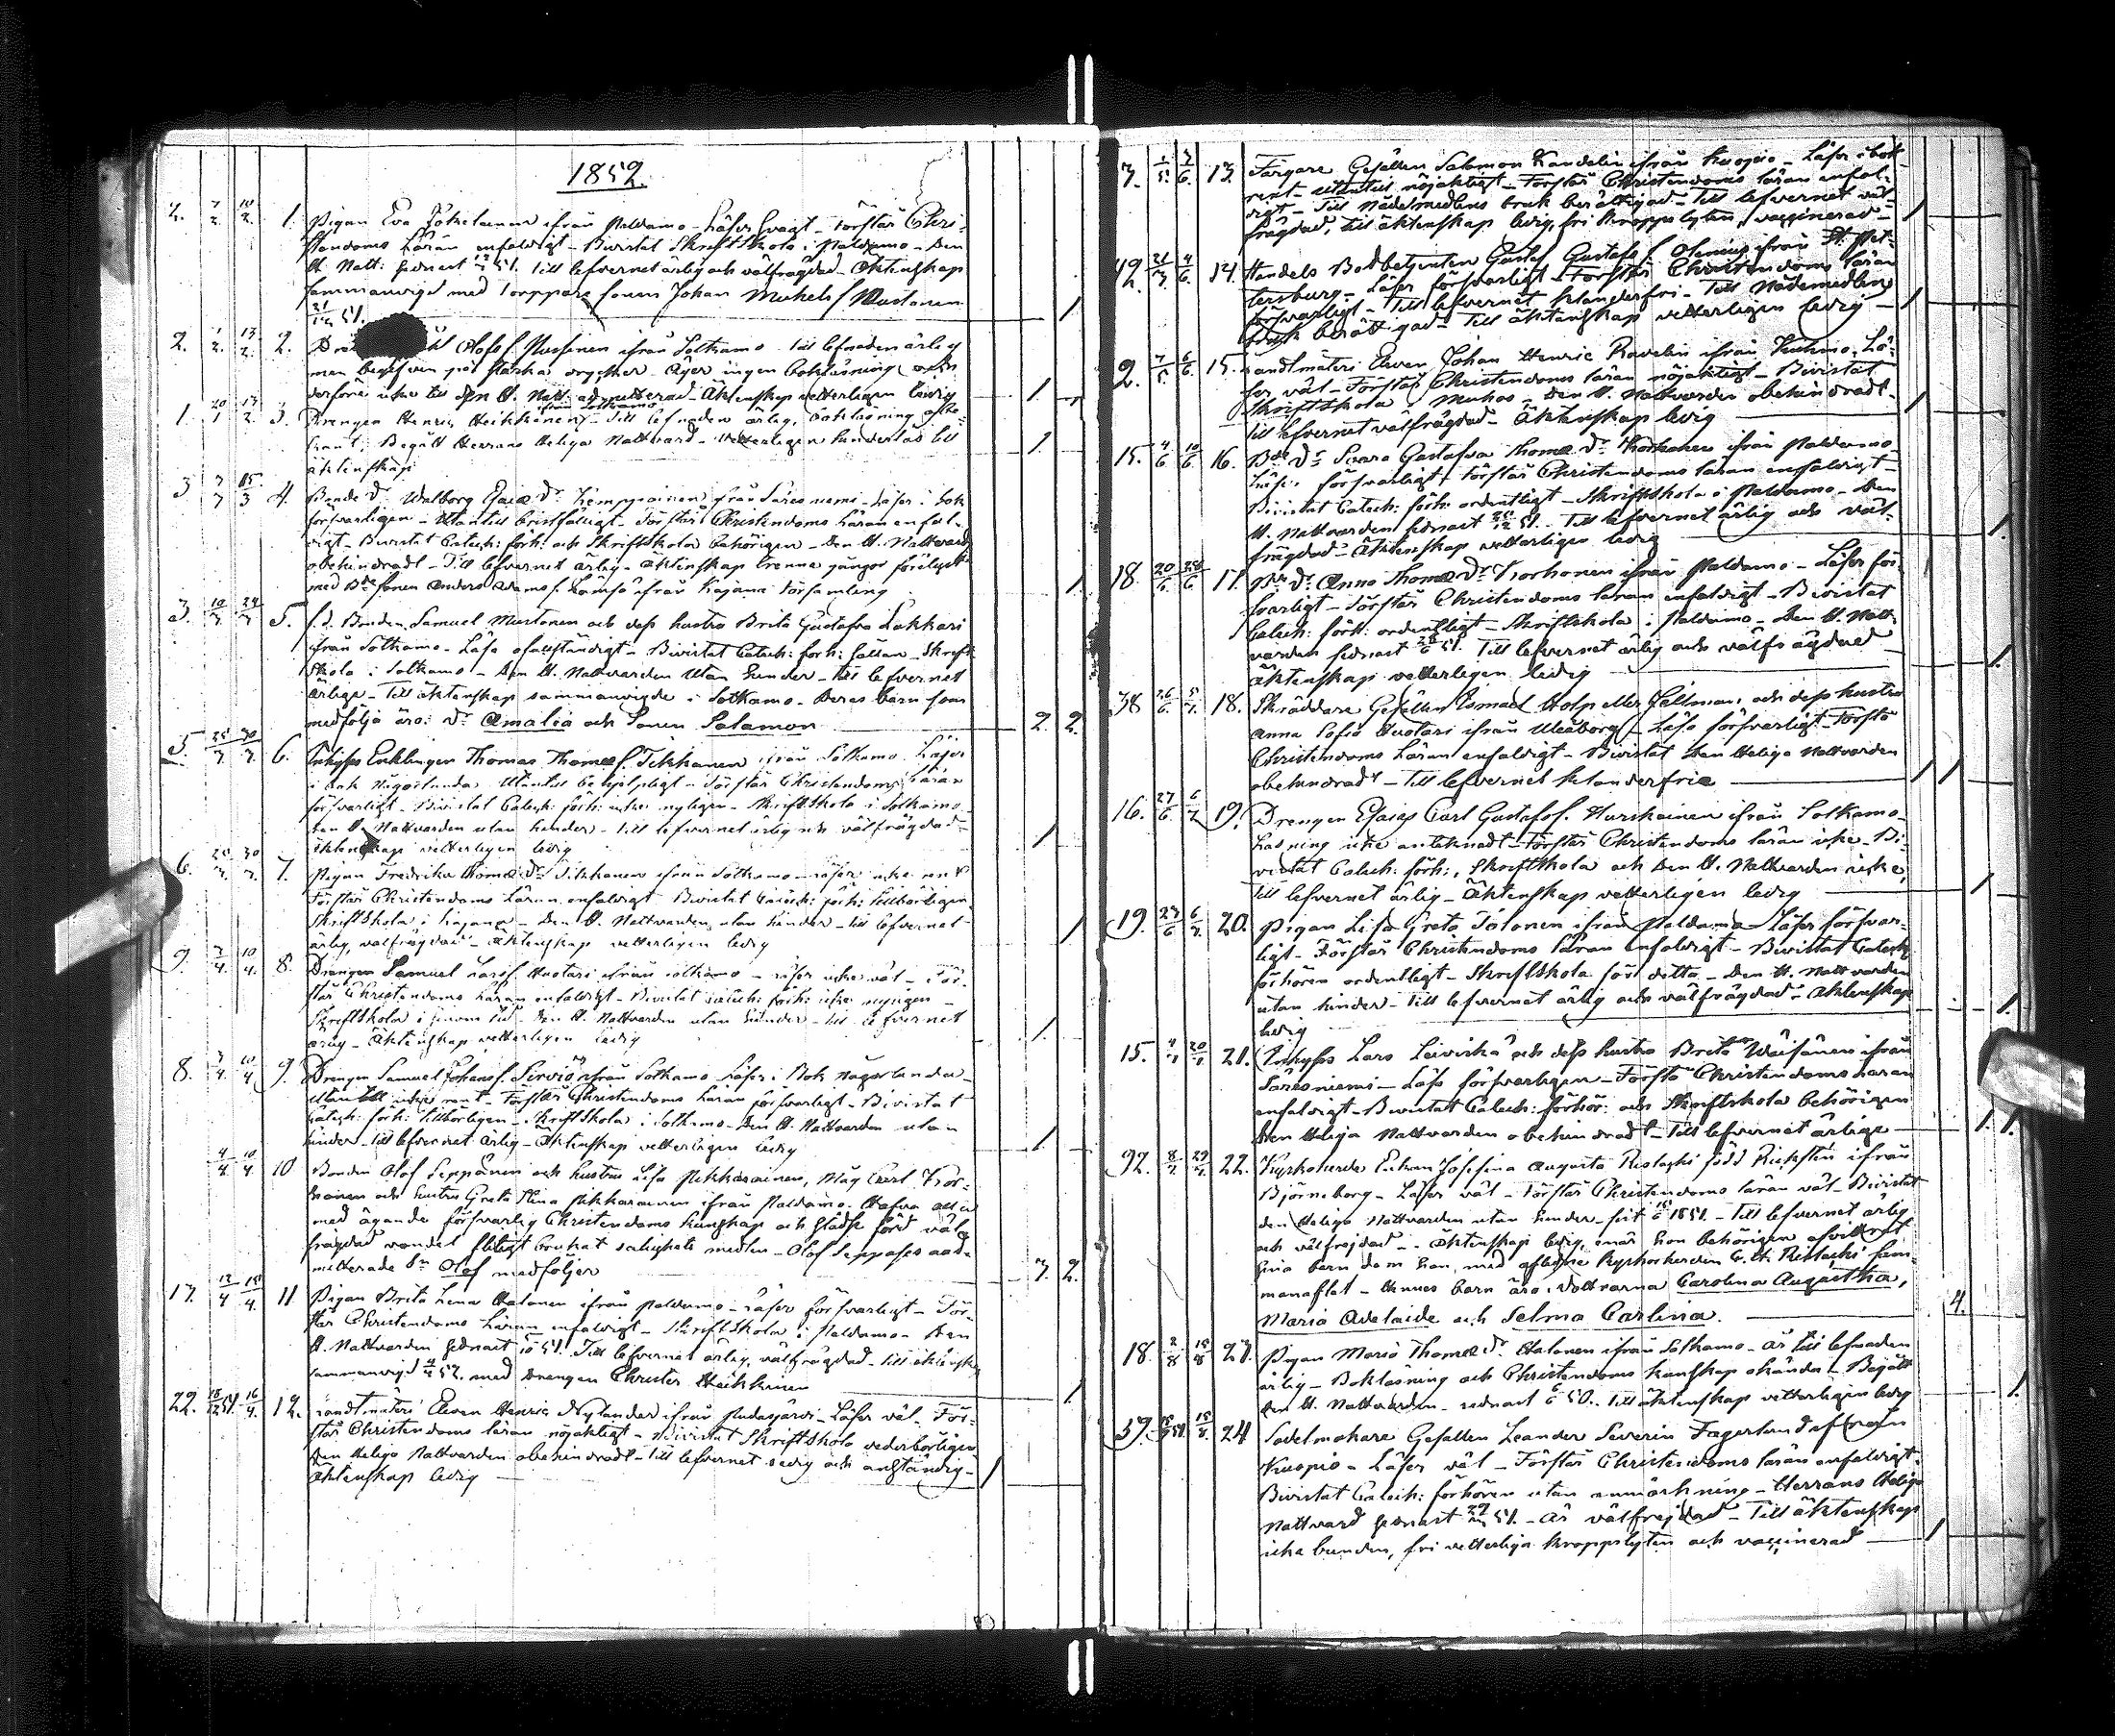 1852.
2. 7/2. 10/2. 1. Pigan Eva Jokelainen ifrån Paldamo - Läser svagt - Förstår Chri-
stendoms Läran enfaldigt - Bivistat Skriftskola i Paldamo - Den
H. Natt: sednast 51. Till lefvernet ärlig och välfrägdad - Äktenskap
sammanvigd med Torppare sonen Johan Michels s. Mustonen
51. 1
2. 1/2. 13/2. 2. Olofs s. ifrån Sotkamo - Till lefnaden ärlig
men begifven på starka drycker - Äger ingen Bokläsning och
derföre icke till den H. Natt: admitterad - Äktenskap vetterligen ledig 1
1. 20/1 17/2 3. Drengen Henric Heikkinen ifrån Sotkamo - Till lefnaden ärlig, Bokläsning
Begått Herrans Heliga Nattvard - Vetterligen hinderlös till 1.
äktenskap
3 4. Bonde Dr. Walborg Esaiæ Dr. Kemppainen ifrån Säresniemi - Läser i bok
försvarligen - Utantill bristfälligt - Förstår Christendoms Läran enfal-
digt - Bivistat Catech: förh: och Skriftskola behörigen - Den H. Nattvard
obehindradt - Till lefvernet ärlig - Äktenskap trenne gångor förelyst
med Bde sonen Anders Adams s. ifrån Kajana Församling 1
3. 5. f.d. Bonden Samuel Mustonen och dess hustru Brita Gustafva Lukkari
ifrån Sotkamo - Läsa - Bivistat Catech: förh: sällan - Skrift
skola i Sotkamo - Den H. Nattvarden utan hinder - till lefvernet
ärliga - Till äktenskap sammanvigde i Sotkamo - Deras barn som
medfölja äro: Dr. Amalia och Sonen Salamon 2. 2.
5. 25/3. 30/3. 6. Inhyses Enklingen Thomas Thomæ s. Tikkanen ifrån Sotkamo. Läser
i bok någorlunda - Utantill behjelpligt - Förstår Christendoms Läran
försvarligt - Bivistat Catech: förh: icke nyligen - Skriftskola i Sotkamo -
Den H. Nattvarden utan hinder - till lefvernet ärlig och välfrägdad -
äktenskap vetterligen ledig 1
6. 7. Pigan Fredrika Thomæ Dr. Tikkanen ifrån Sotkamo - läser icke rent
Förstår Christendoms Läran enfaldigt - Bivistat Catech: förh: tillbörligen
Skriftskola i Kajana - Den H. Nattvarden utan hinder - till lefvernet
ärlig, välfrägdad - Äktenskap vetterligen ledig 1
9. 7/4. 10/4. 8. Drengen Samuel Larss. Huotari ifrån Sotkamo - läser icke väl - För-
står Christendoms Läran enfaldigt - Bivistat Catech: förh: icke nyligen -
Skriftskola i sinom tid - Den H. Nattvarden utan hinder - till lefvernet
ärlig - Äktenskap vetterligen ledig 1.
8. 7/4. 10/4 9. Drengen Samuel Johans s. Serviö ifrån Sotkamo Läser i Bok någorlunda -
utantill icke rent - Förstår Christendoms Läran försvarligt - Bivistat
Catech: förh: tillbörligen - Skriftskola i Sotkamo - Den H. Nattvarden utan
hinder - till lefvernet ärlig - Äktenskap vetterligen ledig 1
4/4 10/4 10 Bonden Olof Seppänen och hustru Lisa Pikkarainen, Måg Carl Kor-
honen och hustru Greta Stina Pikkarainen ifrån Paldamo.
med ägande försvarlig Christendoms kunskap och
frägdad vandel flitigt brukat salighets medlen - Olof Seppäses
mitterade Sn Olof medföljer 3. 2.
17. 12/4 15/4. 11 Pigan Brita Lena Halonen ifrån Paldamo - Läser försvarligt - För-
står Christendoms Läran enfaldigt - Skriftskola i Paldamo - Den
H. Nattvarden sednast 51. Till lefvernet ärlig, välfrägdad - till äktenskap
sammanvigd 4/4 52. med Drengen Christer Heikkinen 1
22. 18/12 51 16/4. 12. Landtmäteri Eleven Henric Nylander ifrån Pudasjärvi - Läser väl - För-
står Christendoms läran nöjaktigt - Bivistat Skriftskola vederbörligen
Den Heliga Nattvarden obehindradt - till lefvernet sedig och anständig -
Äktenskap ledig 1
3. 1/5. 3/6. 13. Färgare Gesällen Salomon Kandelin ifrån Kuopio - Läser i bok
rent - utantill nöjaktigt - Förstår Christendoms läran enfal-
digt - Till Nådemedlens bruk berättigad - Till lefvernet väl-
frägdad, till äktenskap ledig, fri kroppslyten, vaccinerad - 1
42. 21/3 4/6 14. Handels Bodbetjenten Gustaf Gustafs s. ifrån St. Pet-
tersburg - Läser försvarligt - Förstår Christendoms läran
försvarligt - Till lefvernet klanderfri - Till Nådemedlens
bruk berättigad - Till äktenskap vetterligen ledig - 1
2. 7/5. 6/6 15. Landtmäteri Eleven Johan Henric Ravelin ifrån Kuhmo - Lä-
ser väl - Förstår Christendoms läran nöjaktigt - Bivistat
Skriftskola i Muhos - Den H. Nattvarden obehindradt -
till lefvernet välfrägdad - Äktenskap ledig 1
15. 4/6 10/6 16. Bde Dr. Gustafva Thomæ Dr. Korhonen ifrån Paldamo
Läser försvarligt - Förstår Christendoms läran enfaldigt -
Bivistat Catech: förh: ordentligt - Skriftskola i Paldamo - Den
H. Nattvarden sednast 51. Till lefvernet ärlig och väl-
frägdad - Äktenskap vetterligen ledig 1.
18. 17. Bde Dr. Anna Thomæ Dr. Korhonen ifrån Paldamo - Läser för-
svarligt - Förstår Christendoms läran enfaldigt - Bivistat
Catech: förh: ordentligt - Skriftskola i Paldamo - Den H. Natt-
varden sednast 51. Till lefvernet ärlig och välfrägdad -
äktenskap vetterligen ledig 1.
38 26/6. 5/7. 18. Skräddare Gesällen Esmael Holp eller Fällman, och dess hustru
Anna Sofia Huotari ifrån Uleåborg - Läsa försvarligt - Förstå
Christendoms Läran enfaldigt - Bivistat Den Heliga Nattvarden
obehindradt - Till lefvernet klanderfria 1 1
16. 27/6. 6/7 19. Drengen Esaias Carl Gustafs s. Hurskainen ifrån Sotkamo -
Läsning icke antecknadt - Förstår Christendoms läran icke - Bi-
vistat Catech: förh:, Skriftskola och Den H. Nattvarden icke,
till lefvernet ärlig - Äktenskap vetterligen ledig 1
19. 6/7. 20. Pigan Lisa Greta Tolonen ifrån Paldamo - Läser försvar-
ligt - Förstår Christendoms läran enfaldigt - Bivistat Catech
förhören ordentligt - Skriftskola för detta - Den H. Nattvarden
utan hinder - Till lefvernet ärlig och välfrägdad - Äktenskap
ledig 1.
15. 21. Inhyses Lars Leiviskä och dess hustru Brita Wäisänen ifrån
Säresniemi - Läsa försvarligen - Förstå Christendoms läran
enfaldigt - Bivistat Catech: förhör: och Skriftskola behörigen
Den Heliga Nattvarden obehindradt - Till lefvernet ärliga 1. 1.
92. 8/7. 29/7. 22. Kyrkoherde Enkan Josefina Augusta född ifrån
Björneborg - Läser väl - Förstår Christendoms läran väl - Bivistat
den Heliga Nattvarden utan hinder 1851. - Till lefvernet ärlig
och välfrejdad - Äktenskap ledig, enär hon behörigen afvittrat
sina barn dem hon med aflidne Kyrkoherden sam-
manaflat - Hennes barn äro: Döttrarna Carolina Augustha,
Maria Adelaide och Selma Carlina. 4.
18. 2/8 15/8 23. Pigan Maria Thomæ Dr. Halonen ifrån Sotkamo - Är till lefnaden
ärlig - Bokläsning och Christendoms kunskap okända - Begått
Den H. Nattvarden sednast 50. - Till äktenskap vetterligen ledig 1.
59. 15/8. 24 Sadelmakare Gesällen Leander Severin Fagerlund ifrån
Kuopio - Läser väl - Förstår Christendoms läran enfaldigt -
Bivistat Catech: förhören utan anmärkning - Herrans Heliga
Nattvard sednast 51. - Är välfrejdad - Till äktenskap
icke bunden, fri vetterliga kroppslyten och vaccinerad 1